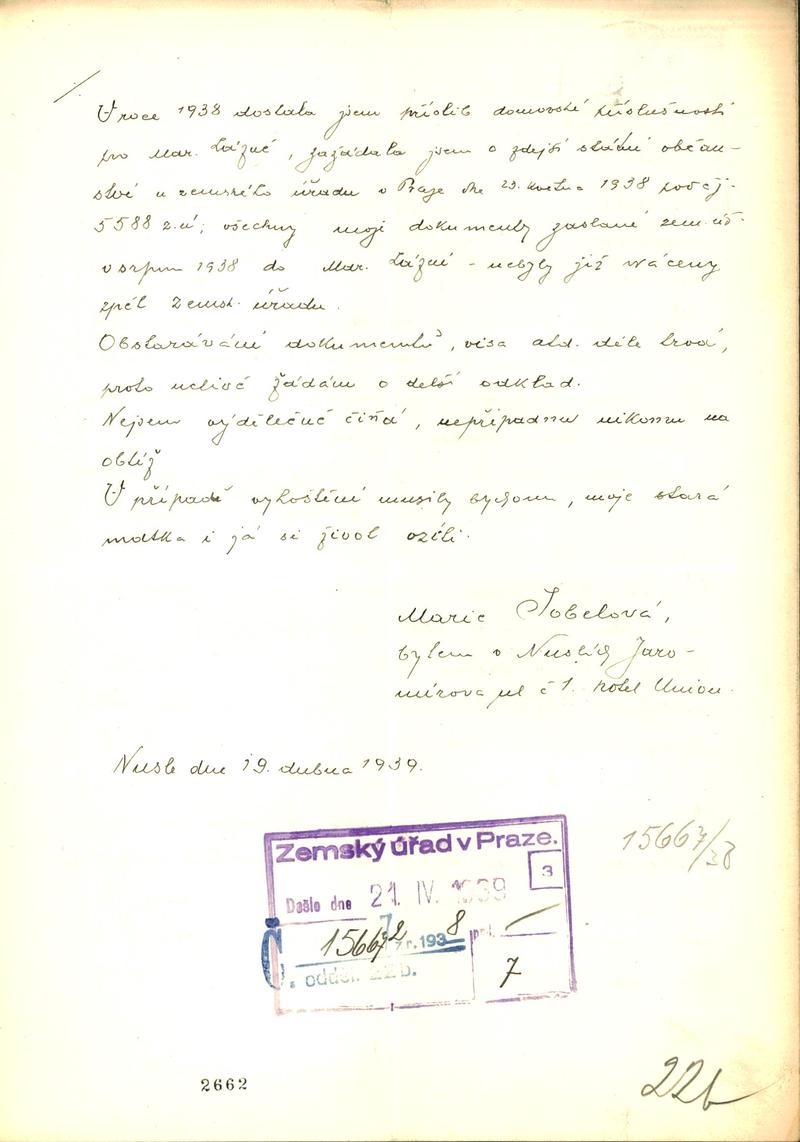 V roce 1938 dostala jsem příslib domovské příslušnosti
pro Mar. Lázně, zažádala jsem o zdejší státní občan-
ství u zemského úřadu v Praze dne 23. května 1938 pod čj.
5588 z.ú; všechny moje dokumenty zaslané zem. úř.
v srpnu 1938 do Mar. Lázní - nebyly již vráceny
zpět Zemsk. úřadu.
Obstarávání dokumentů, visa atd. déle trvá,
proto uctivě žádám o delší odklad.
Nejsem výdělečně činná, nepřipadnu nikomu na
obtíž
V případě vyhoštění musily bychom, moje stará
matka i já si život vzíti.
Marie Tobelová,
bytem v Nuslích Jaro-
mírova ul č 1. hotel Union.
Nusle dne 19. dubna 1939.
15667/38
Zemský úřad v Praze.
3
Došlo dne 21. IV. 1939
Č. 15667 z r. 1938 příl.
2
. odděl. 22b.
7
2662
22b